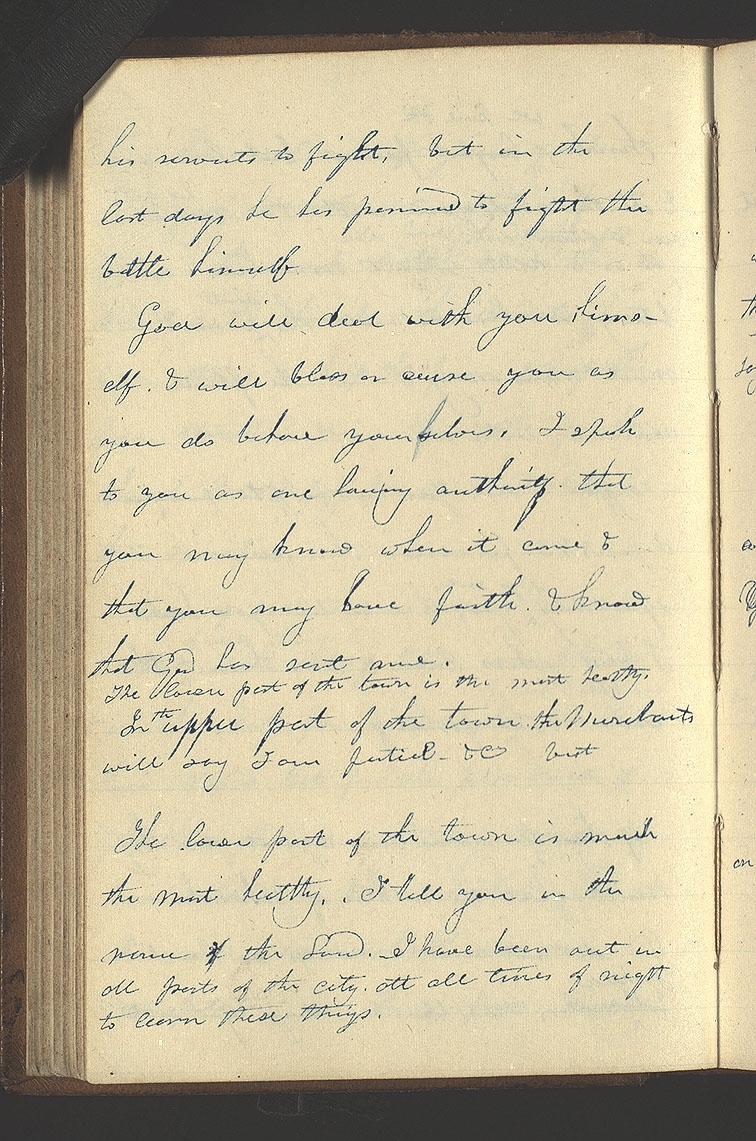 his servants to fight, but in the
last days he has promised to fight the
battle himself
God will deal with you hims-
elf. & will bless or curse you as
you do behave yourselves. I speak
to you as one having authority that
you may know when it come &
that you may have faith. & know
that God has sent me.
The lower part of the town is the most healthy.
In th upper part of the town the Merchants
will say I am partial &c but
The lower part of the town is much
the most healthy. I tell you in the
name of the Lord. I have been out in
all parts of the city. att all times of night
to learn these things.